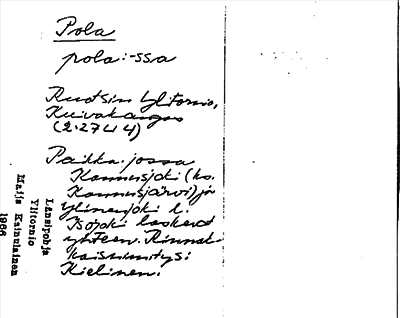 Pola
pola:-ssa
Ruotsin Ylitornio,
Kuivakangas
(2·27 U 4)
Paikka jossa
Kannusjoki (ks.
Kannusjärvi) ja
Ylinenjoki l.
Isojoki laskevat
yhteen. Rinnak-
kaisnimitys:
Kielinen.
Länsipohja
Ylitornio
Maija Kainulainen
1966